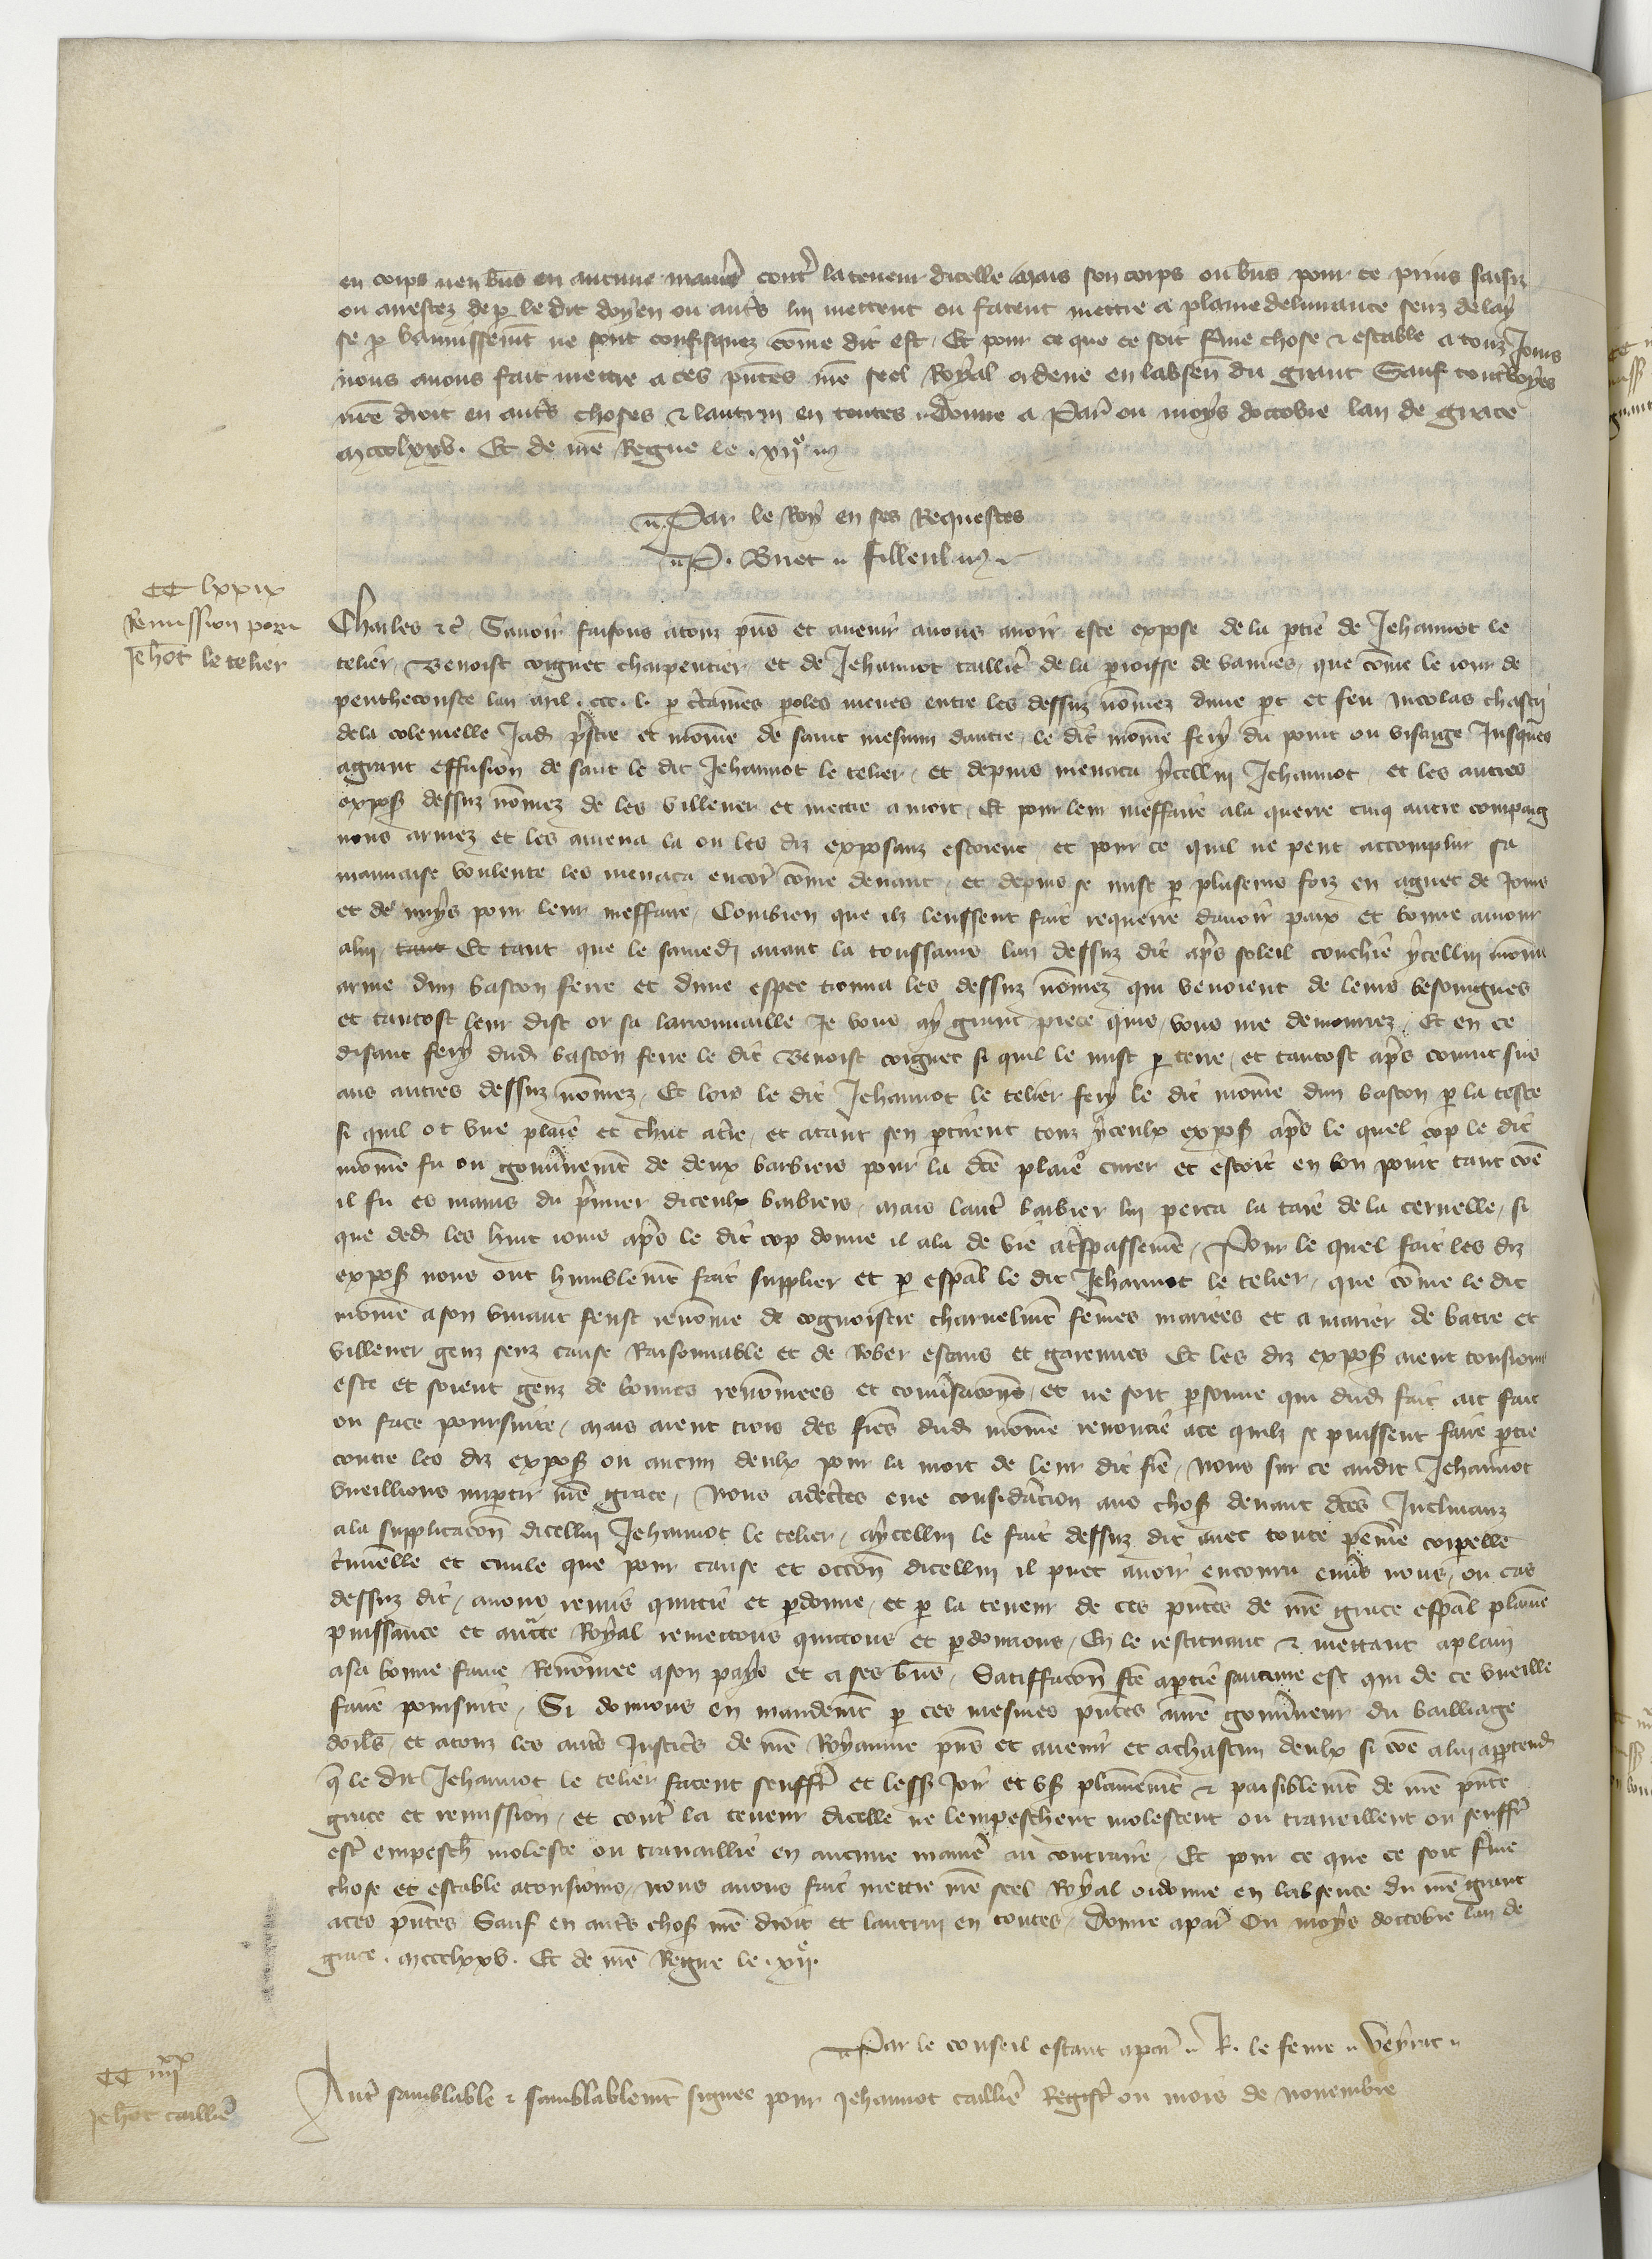 en corps nen bn̄s en aucune manie᷑ cont᷑ la teneur dicelle Mais son corps ou bn̄s pour ce prins saisiz
ou arrestez de p̱ le dit doyen ou aut᷑s lui mettent ou facent mettre a plaine deliurance senz delay
se p̱ bannissem̄t ne sont confisquez cōme dit est Et pour ce que ce soit ferme chose & estable a touz Jours
nous auons fait mettre a ces pn̄tes nr̄e seel Royal ordene en labsen̄ du grant Sauf toutesvoyes
nr̄e droit en aut᷑s choses & lautrui en toutes Donne a Par᷑ ou moys doctobre lan de grace
mccclxxv. Et de nr̄e Regne le .xij͛
Par le Roy en ses Requestes
P. Buet filleul
CC lxxix
Remission pour
Jeh̄ot le telier
Charles &c᷑ Sauoir faisons a touz pn̄s et auenir a nous auoir este expose de la p̱tie de Jehannot le
telier, Benoist coignet charpentier, et de Jehannot taillie᷑ de la p̱roisse de vannes, que cōme le iour de
penthecouste lan mil.ccc.l. p̱ c᷑taines p̱oles meues entre les dessuz nōmez dune p̱t et feu nicolas chastij
de la colemelle Jad᷑ p᷑stre et moinne de saint mesmin dautre, le dit moinne fery du poing ou visaige Jusques
a grant effusion de sanc le dit Jehannot le telier, et depuis menaca ycellui Jehannot, et les autres
expos᷑ dessuz nōmez de les villener et mettre a mort, Et pour leur meffaire ala querre cinq autre compaig
nons armez et les amena la ou les diz exposanz estoient, et pour ce quil ne peut accomplir sa
mauuaise voulente les menaca encor᷑ cōme deuant, et depuis se mist p̱ pluseurs foiz en aguet de Jours
et de nuys pour leur meffaire, Combien que ilz leussent fait requerre dauoir paix et bonne amour
a lui, tant Et tant que le samed᷑ auant la toussains lan dessuz dit ap᷑s soleil couchie ycellui moinne
arme dun baston ferre et dune espee trouua les dessuz nōmez qui venoient de leurs besoingnes
et tantost leur dist or sa larronnaille Je vous ay grant piece quis, vous me demourrez, Et en ce
disant fery dud᷑ baston ferre le dit Benoist coignet si quil le mist p̱ terre, et tantost ap᷑s courut sus
aus autres dessuz nōmez, Et lors le dit Jehannot le telier fery le dit moinne dun baston p̱ la teste
si quil ot vne plaie et chut a t᷑re, et atant sen p̱tirent touz yceulx expos᷑ ap᷑s le quel cop le dit
moinne fu ou gouu᷑nem̄t de deux barbiers pour la dc̄e plaie curer et estoit en bon point tant cōe
il fu es mains du p᷑mier diceulx barbiers, Mais laut᷑ barbier lui perca la taie de la ceruelle, si
que ded᷑ les huit iours ap᷑s le dit cop donne il ala de vie a t᷑spassemen̄, Pour le quel fait les diz
expos᷑ nous ont humblem̄t fait supplier et p̱ esp̄al le dit Jehannot le telier, que cōme le dit
moinne a son viuant feust renōme de cognoistre charnelm̄t fēmes mariees et a marier de batre et
villener genz senz cause Raisonnable et de Rober estans et garennes Et les diz expos᷑ aient tousiours
este et soient genz de bonnes renōmees et conu᷑sacōns, et ne soit p̱sonne qui dud᷑ fait ait fait
ou face poursuite, Mais aient trois des fr̄es dud᷑ moinne renoncie a ce quilz se puissent faire p̱tie
contre les diz expos᷑ ou aucun deulx pour la mort de leur dit fr̄e, Nous sur ce audit Jehannot
vueillions imp̱tir nr̄e grace, Nous adec᷑tes eue considerac̄ion aus chos᷑ deuant dc̄es Inclinanz
a la supplicacōn dicellui Jehannot le telier, a ycellui le fait dessuz dit auec toute peine corp̱elle
c᷑iminelle et ciuile que pour cause et occōn dicellui il puet auoir encouru enu᷑s nous, ou cas
dessuz dit, auons remis quittie et p̱donne, et p̱ la teneur de ces pn̄tes de nr̄e grace esp̄al plaine
puissance et auct̄te Royal remettons quittons et p̱donnons, En le restituant & mettant a plain
a sa bonne fame Renōmee a son pays et a ses bn̄s, Satiffacōn fc̄e a p̱tie saucune est qui de ce vueille
faire poursuite, Si donnons en mandem̄t p̱ ces mesmes pn̄tes a nr̄e gouu᷑neur du bailliage
dorl̄s, et a touz les aut᷑s Justic᷑s de nr̄e Royaume pn̄s et auenir et a chascun deulx si cōe a lui app̱tend᷑
q̄ le dit Jehannot le telier facent seuffr᷑ et less᷑ Joir et vs᷑ plainem̄t & paisiblem̄t de nr̄e pn̄te
grace et remission, et cont᷑ la teneur dicelle ne lempeschent molestent ou traueillent ou seuffr᷑
est᷑ empesch̄ moleste ou trauaillie en aucune manie᷑ au contraire, Et pour ce que ce soit ferme
chose et estable a tousiours, nous auons fait mettre nr̄e seel Royal ordonne en labsence du nr̄e grant
a ces pn̄tes Sauf en aut᷑s chos᷑ nr̄e droit et lautrui en toutes, Donne a par᷑ Ou moys doctobre lan de
grace. mccclxxv. Et de nr̄e Regne le .xij͛.
Par le conseil estant a par᷑ R. le feure Veyrac
CC iiijͯ ͯ
Jeh̄ot taillie᷑
Aut᷑ samblable & samblablem̄t signee pour Jehannot taillie᷑ Regist᷑ ou mois de nouembre